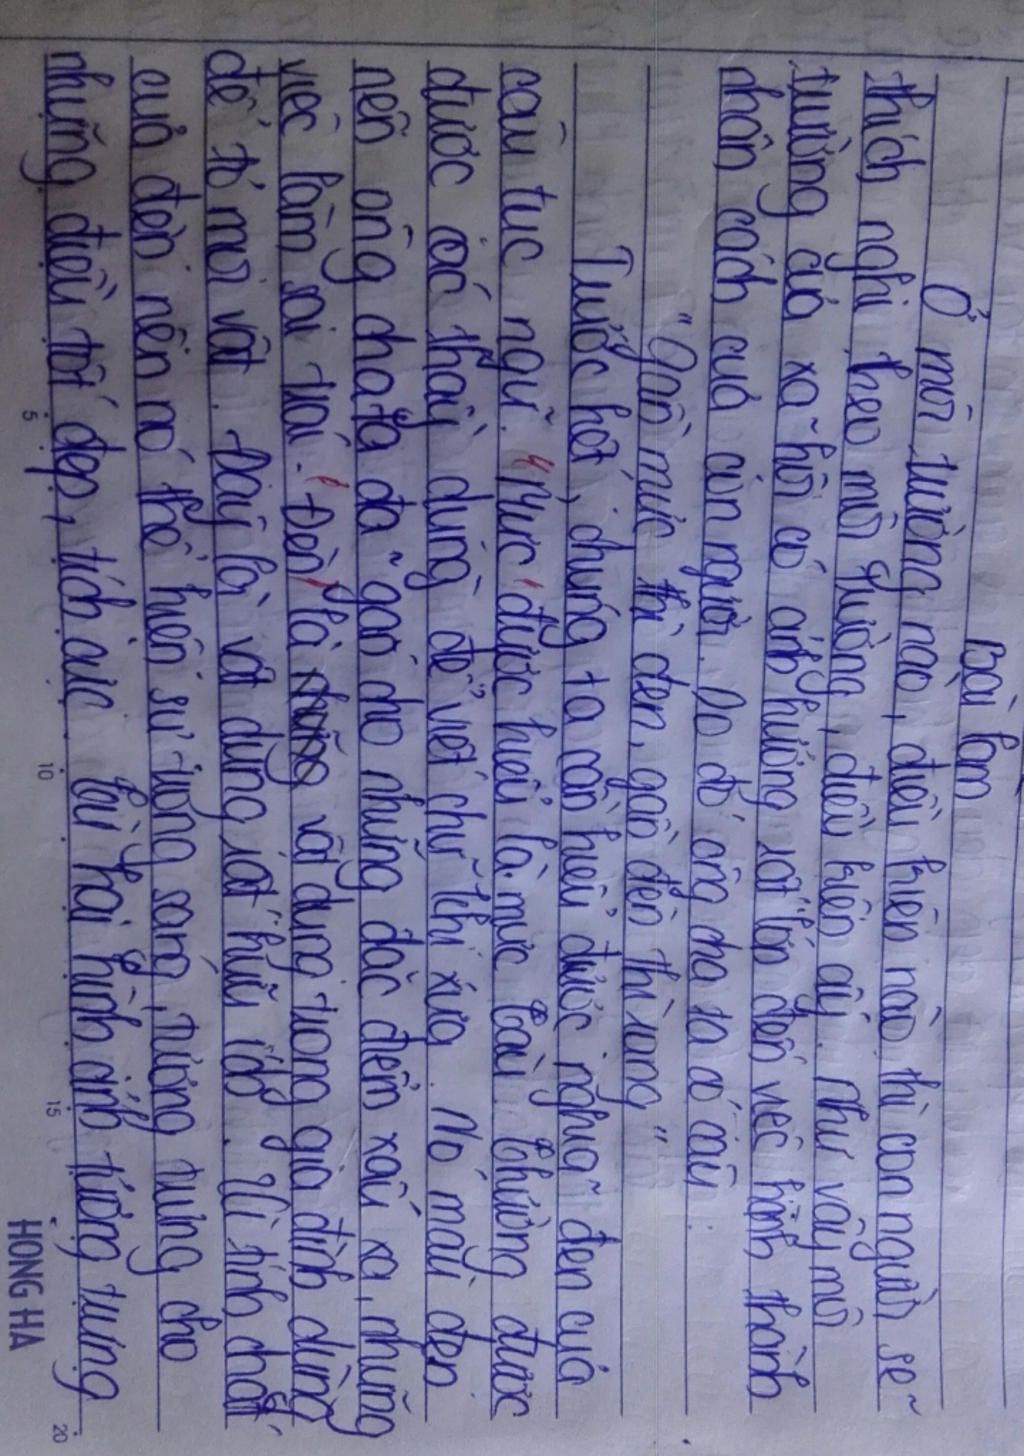 Bài làm
Ở môi trường nào, điều kiện nào thì con người sẽ
thích nghi theo môi trường, điều kiện ấy. Như vậy môi
trường của xã hội có ảnh hưởng rất lớn đến việc hình thành
nhân cách của con người. Do đó ông cha ta có câu:
"Gần mực thì đen, gần đèn thì rạng"
Trước hết, chúng ta cần hiểu được nghĩa đen của
câu tục ngữ. "Mực" được hiểu là mực tàu thường được
được các thầy dùng để viết chữ khi xưa. Nó màu đen
nên ông cha ta đã gán cho những đặc điểm xấu xa, những
việc làm sai trái. "Đèn" là vật dụng trong gia đình dùng
để tỏ mọi vật. Đây là vật dụng rất hữu ích. Vì tính chất
của đèn nên nó thể hiện sự rạng sáng, tượng trưng cho
những điều tốt đẹp, tích cực. Từ hai hình ảnh tượng trưng
5 10 15 20
HONG HA